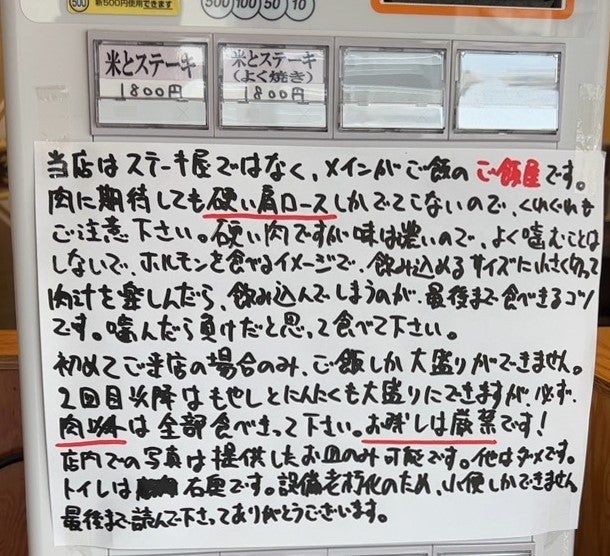 500
新500円使用できます
500 100 50 10
米とステーキ
1800円
米とステーキ
(よく焼き)
1800円
当店はステーキ屋ではなく、メインがご飯のご飯屋です。
肉に期待しても硬い肩ロースしかでてこないので、くれぐれも
ご注意下さい。硬い肉ですが味は濃いので、よく噛むことは
しないで、ホルモンを食べるイメージで、飲み込めるサイズに小さく切って
肉汁を楽しんだら、飲み込んでしまうのが、最後まで食べきるコツ
です。噛んだら負けだと思って食べて下さい。
初めてご来店の場合のみ、ご飯しか大盛りができません。
2回目以降はもやしとにんにくも大盛りにできますが、必ず、
肉以外は全部食べきって下さい。お残しは厳禁です!
店内での写真は提供したお皿のみ可能です。他はダメです。
トイレは 右奥です。設備老朽化のため、小便しかできません
最後まで読んで下さってありがとうございます。